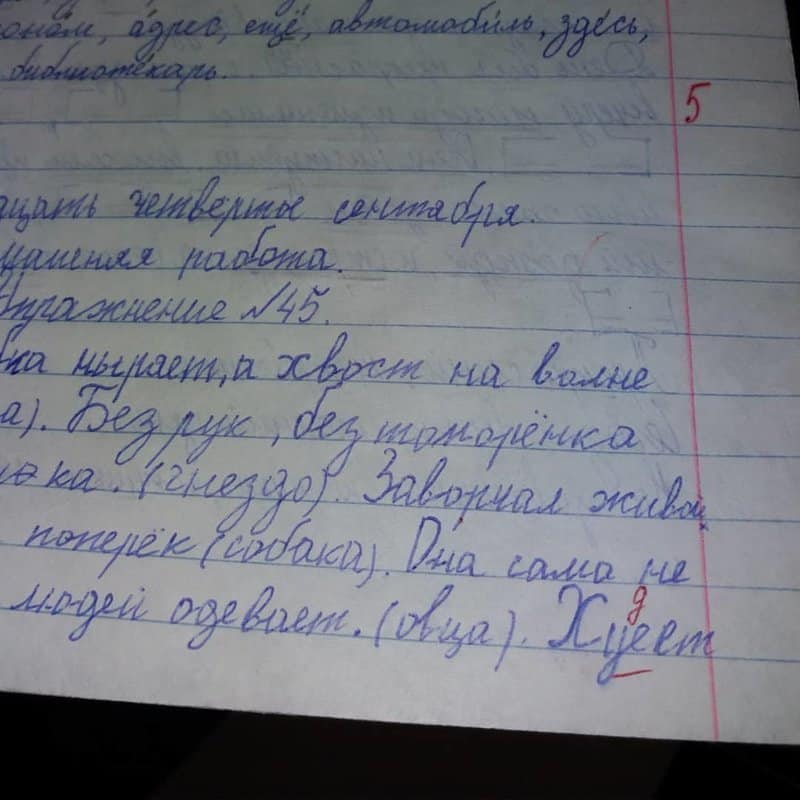 оном, а́дрес, ещё, автомоби́ль, зде́сь,
библиоте́карь.
5
дцать четвертое сентября.
машняя работа.
Упражнение №45.
бка ныряет, а хвост на волне
а). Без рук, без топорёнка
ка. (гнездо). Заворчал живой
поперёк (собака). Она сама не
людей одевает. (овца). Хуеет
д